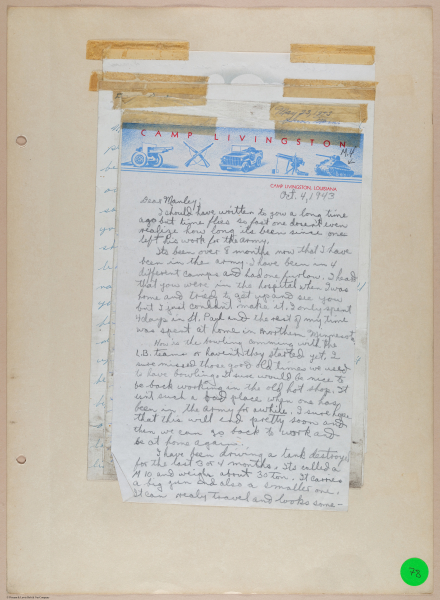 CAMP LIVINGSTON
CAMP LIVINGSTON, LOUISIANA
Oct. 4, 1943
Dear Manley,
I should have written to you a long time
ago but time flies so fast one doesn't even
realize how long its been since one
left his work for the army.
Its been over 8 months now that I have
been in the army. I have been in 4
different camps and had one furlow. I heard
that you were in the hospital when I was
home and tried to get up and see you
but I just couldn't make it. I only spent
4 days in St. Paul and the rest of my time
was spent at home in northern Minnesota.
How is the bowling comming with the
I.B. team or haven't they started yet. I
sure missed those good old times we used
to have bowling. It sure would be nice to
be back working in the old hot shop. It
isn't such a bad place when one has
been in the army for awhile. I sure hope
that this will end pretty soon and
then we can go back to work and
be at home again.
I have been driving a tank destroyer
for the last 3 or 4 months. Its called a
M 10 and weighs about 30 ton. It carries
a big gun and also a smaller one.
It can realy travel and looks some-
78